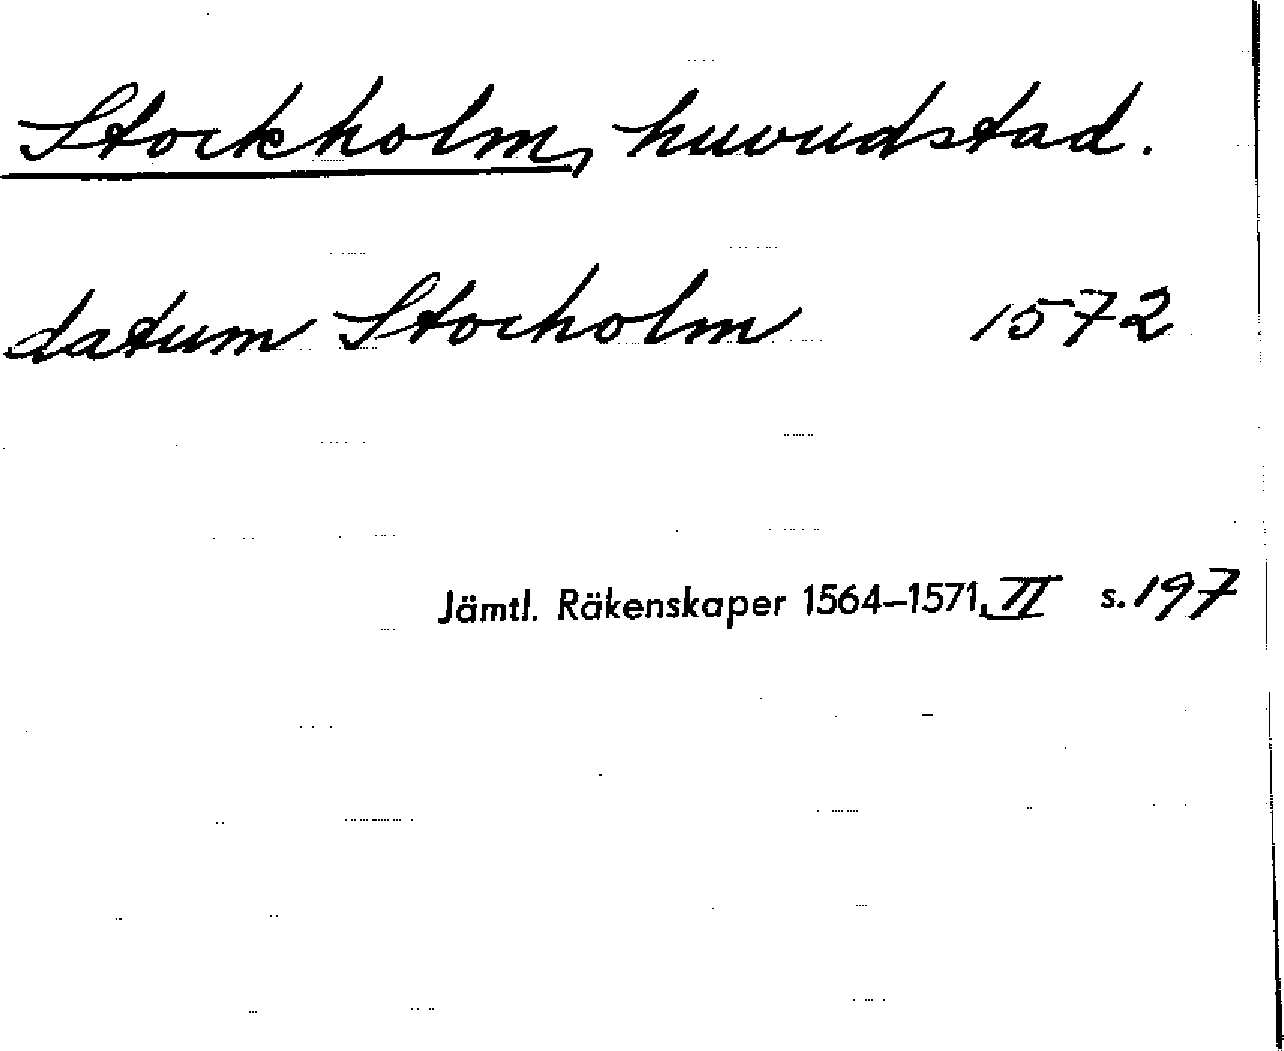 Stockholm, huvudstad.
datum Stocholm 1572
Jämtl. Räkenskaper 1564–1571, II s. 197